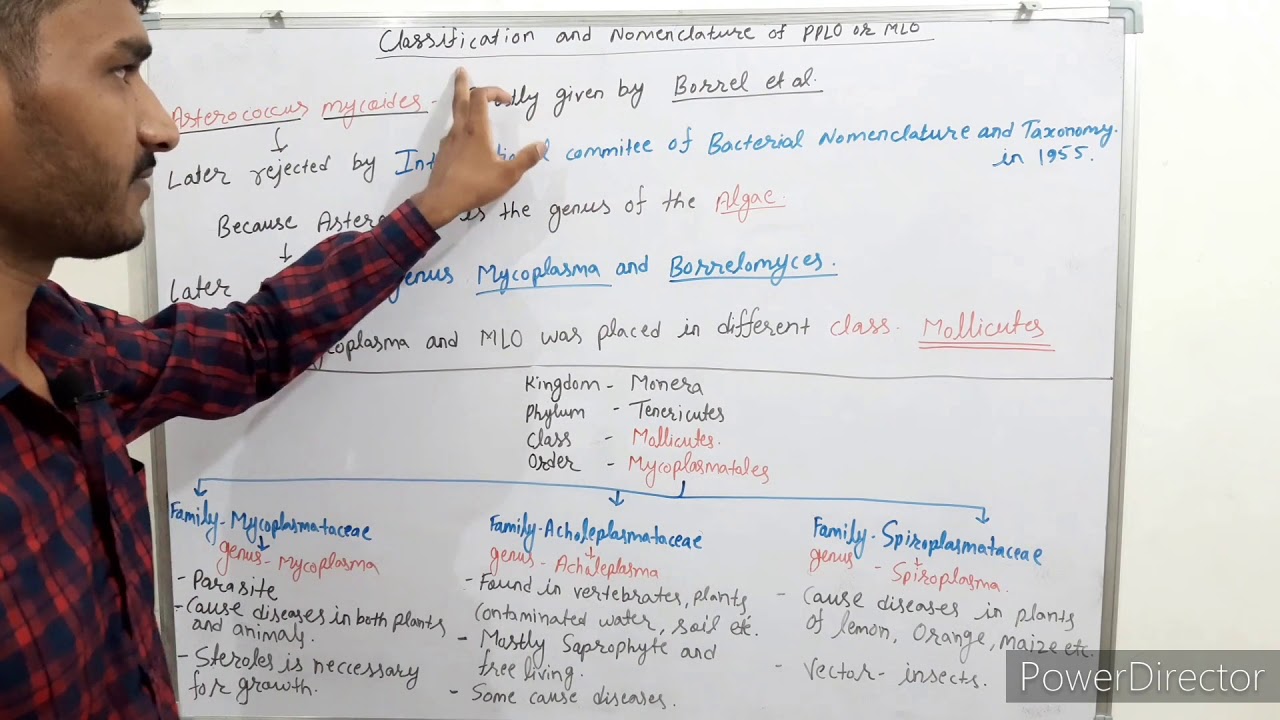 Classification and Nomenclature of PPLO or MLO
Asterococcus mycoides - given by Borrel et al.
Later rejected by commitee of Bacterial Nomenclature and Taxonomy.
in 1955.
Because is the genus of the Algae.
Later genus Mycoplasma and Borrelomyces.
and MLO was placed in different class. Mollicutes
Kingdom - Monera
Phylum - Tenericutes
Class - Mollicutes.
Order - Mycoplasmatales
Family - Mycoplasmataceae
genus - Mycoplasma
- Parasite
- Cause diseases in both plants
and animals.
- Steroles is neccessary
for growth.
Family - Acholeplasmataceae
genus - Acholeplasma
- Found in vertebrates, plants
contaminated water, soil etc.
- Mostly Saprophyte and
free living.
- Some cause diseases.
Family - Spiroplasmataceae
genus - Spiroplasma
- Cause diseases in plants
of lemon, Orange, Maize etc.
- Vector - insects.
PowerDirector